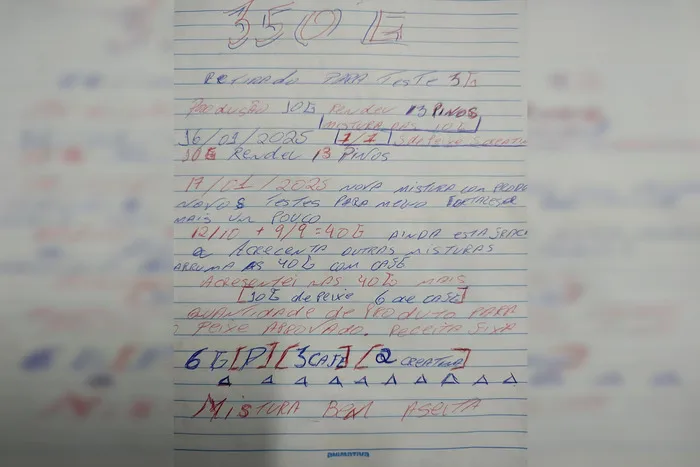 350 G
RETIRADO PARA TESTE 3G
PRODUÇÃO 10G RENDEU 13 PINOS
MISTURA DAS 10G
16/01/2025 1/1
10G RENDEU 13 PINOS
17/01/2025 NOVA MISTURA COM PRODU
NOVOS TESTES PARA
MAIS UM POUCO
12/10 + 9/9 = 40G AINDA ESTA
ACRECENTA OUTRAS MISTURAS
ARRUMA AS 40G COM CAFE
ACRESENTEI NAS 40G MAIS
[10G de Peixe 6 de CAFE]
QUANTIDADE DE PRODUTO PARA
PEIXE APROVADO. RECEITA
6G [P] [3 CAFE] [2 CREATINA]
MISTURA BEM ASEITA